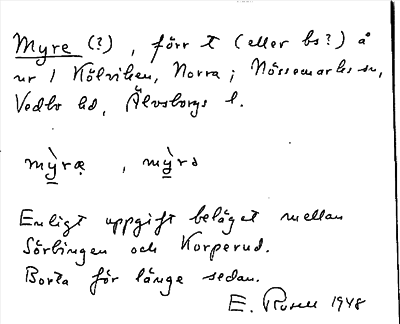 Myre (?), förr t (eller bs?) å
nr 1 Kölviken, Norra; Nössemarks sn,
Vedbo hd, Älvsborgs l.
mỳræ, mỳrə
Enligt uppgift beläget mellan
Sörbingen och Korperud.
Borta för länge sedan.
E. Rosell 1948